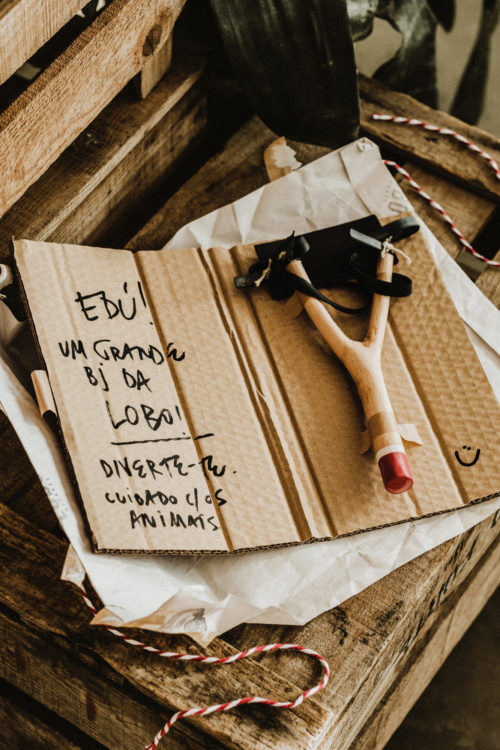 EDÚ!
UM GRANDE
BJ DA
LOBO!
DIVERTE-TE.
CUIDADO C/OS
ANIMAIS.
:)